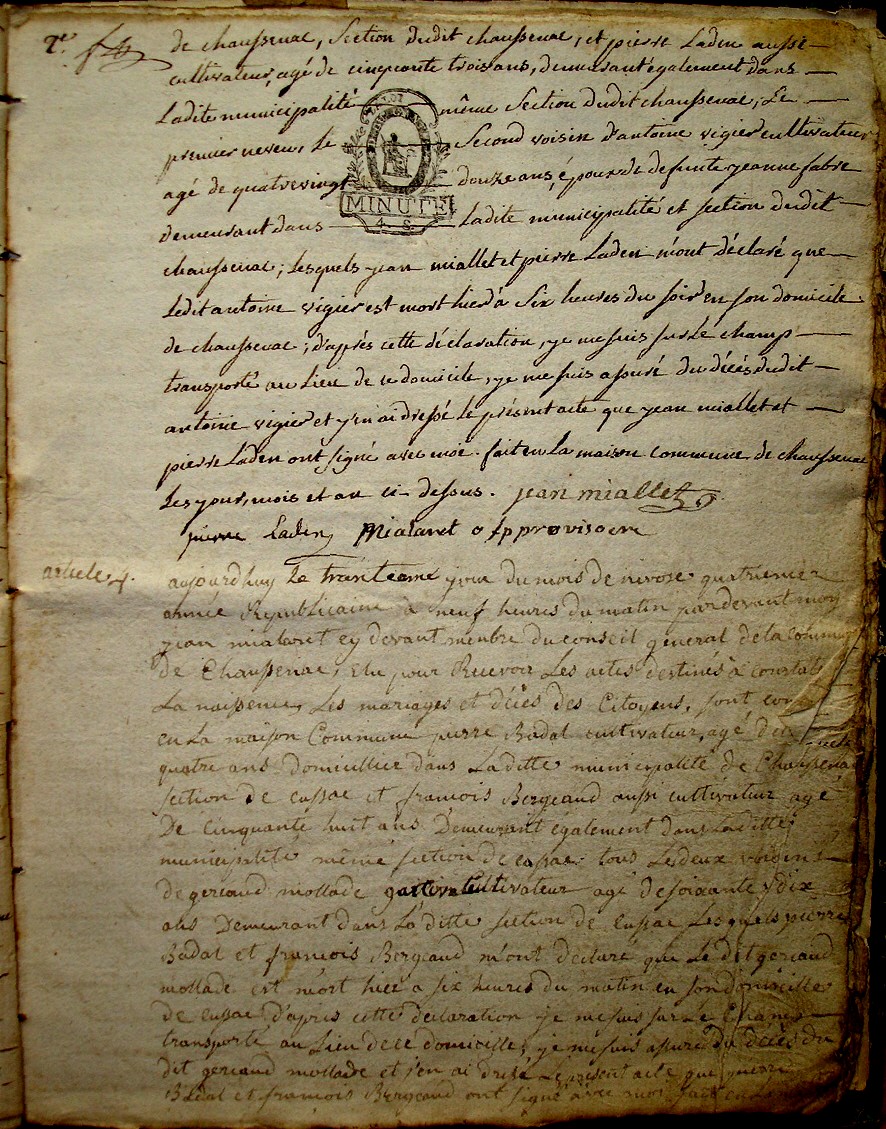 2e.
de chaussenac, Section dudit chaussenac, et pierre Laden aussi
cultivateur, agé de cinquante trois ans, demeurant également dans
Ladite municipalité même Section dudit chaussenac, Le
premier neveu, Le Second voisin d'antoine vigier cultivateur
agé de quatrevingt douze ans, époux de defunte jeanne fabre
MINUTE
demeurant dans Ladite municipalité et section dudit
chaussenac; Lesquels jean miallet et pierre Laden m'ont déclaré que
Ledit antoine vigier est mort hier à Six heures du soir en son domicile
de chaussenac; d'après cette déclaration, je me suis sur Le champ
transporté au Lieu de ce domicile, je me suis assuré du décès dudit
antoine vigier et j'en ai dressé Le présent acte que jean miallet et
pierre Laden ont signé avec moi. fait en La maison commune de chaussenac
Les jour, mois et an ci-dessus. jean miallet
pierre Laden Mialaret
article 4.
aujourdhuy Le trantieme jour du mois de nivose quatrieme
année Republicaine à neuf heures du matin pardevant moy
jean mialaret cy devant menbre du conseil general de la commune
de Chaussenac, elu pour Recevoir Les actes destinés à constater
La naissence, Les mariages et décès des Citoyens, sont
en La maison Commune pierre Badal cultivateur, agé de
quatre ans domicillier dans Laditte municipalité de Chaussenac
section de cussac et francois Bergeaud aussi cultivateur agé
De cinquante huit ans Demeurant également dans Laditte
municipalité même section de cussac tous Les deux voisins
de geriaud mollade cultivateur agé de soixante dix
ans Demeurant dans La ditte section de cussac Lesquels pierre
Badal et francois Bergeaud m'ont declaré que Le dit geriaud
mollade est mort hier a six heures du matin en son domicille
de cussac d'apres cette declaration je me suis sur Le Champ
transporté au Lieu de ce domicille, je me suis assuré du décès du
dit geriaud mollade et j'en ai dressé Le présent acte que pierre
Badal et francois Bergeaud ont signé avec moi fait en La